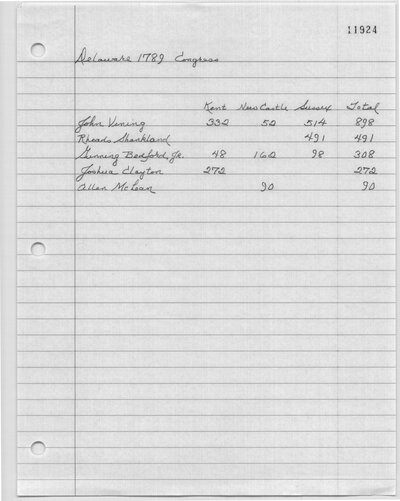 11924
Delaware 1789 Congress
Kent New Castle Sussex Total
John Vining 332 52 514 898
Rhoads Shankland 491 491
Gunning Bedford, Jr. 48 162 98 308
Joshua Clayton 272 272
Allan McLean 90 90